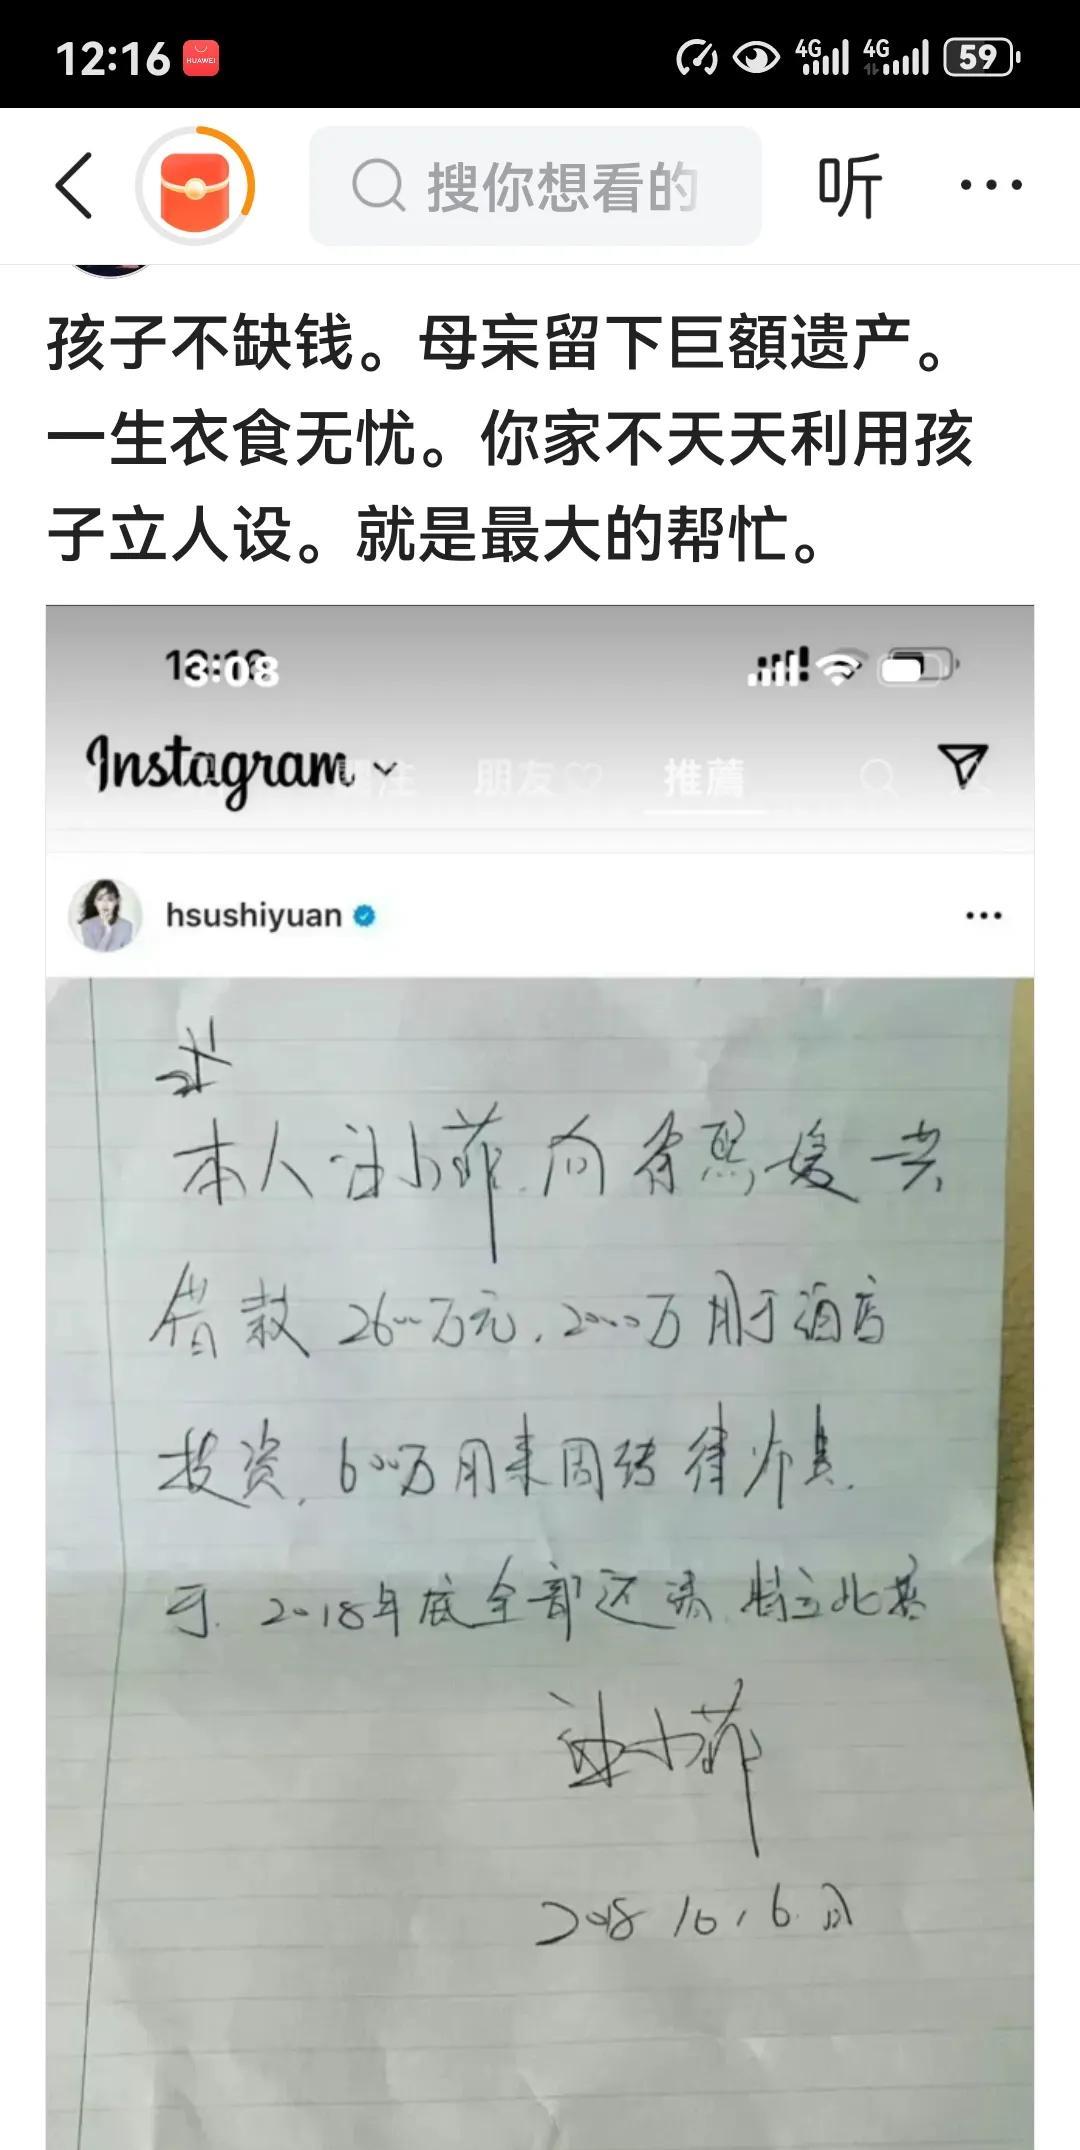 12:16
HUAWEI
4G 4G 59
搜你想看的
听
孩子不缺钱。母亡留下巨額遗产。
一生衣食无忧。你家不天天利用孩
子立人设。就是最大的帮忙。
3:08
Instagram
關注 朋友 推薦
hsushiyuan
本人汪小菲向徐熙媛共
借款2600万元,2000万用于酒店
投资,600万用来周转律师费.
于.2018年底全部还清.特立此据
汪小菲
2018 10,6日